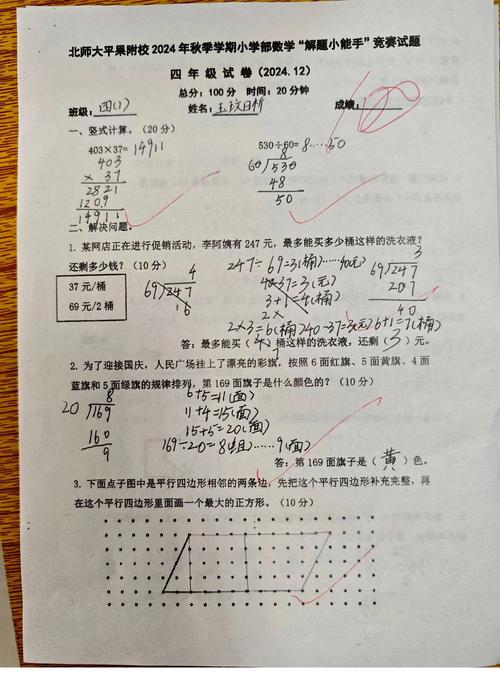 北师大平果附校2024年秋季学期小学部数学“解题小能手”竞赛试题
四年级试卷（2024.12）
总分：100分 时间：20分钟
班级：四(1) 姓名： 成绩：
一、竖式计算。（20分）
403×37=14911 530÷60=8……50
403
× 37
2821
1209
14911
8
60 530
48
50
二、解决问题。
1. 某网店正在进行促销活动，李阿姨有247元，最多能买多少桶这样的洗衣液？
还剩多少钱？（10分）
37元/桶
69元/2桶
4
69 247
6
247÷69=3(桶)……40(元)
40-37=3(元)
3+1=4(桶)
2×
2×3=6(桶) 40-37=3(元) 6+1=7(桶)
3
69 247
207
40
答：最多能买（ ）桶这样的洗衣液，还剩（3）元。
2. 为了迎接国庆，人民广场挂上了漂亮的彩旗，按照6面红旗、5面黄旗、4面
蓝旗和5面绿旗的规律排列，第169面旗子是什么颜色的？（10分）
8
20 169
160
9
6+5=11(面)
11+4=15(面)
15+5=20(面)
169÷20=8(组)……9(面)
答：第169面旗子是（黄）色。
3. 下面点子图中是平行四边形相邻的两条边，先把这个平行四边形补充完整，再
在这个平行四边形里面画一个最大的正方形。（10分）